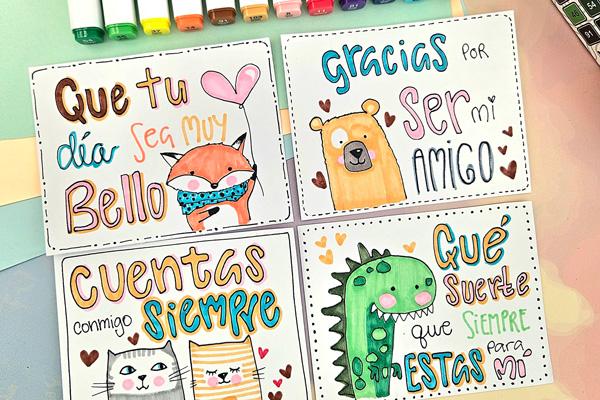 Que tu
día Sea MUY
Bello
gracias POR
Ser mi
AMIGO
cuentas
conmigo Siempre
Qué
Suerte
que SIEMPRE
ESTAS Para
Mí